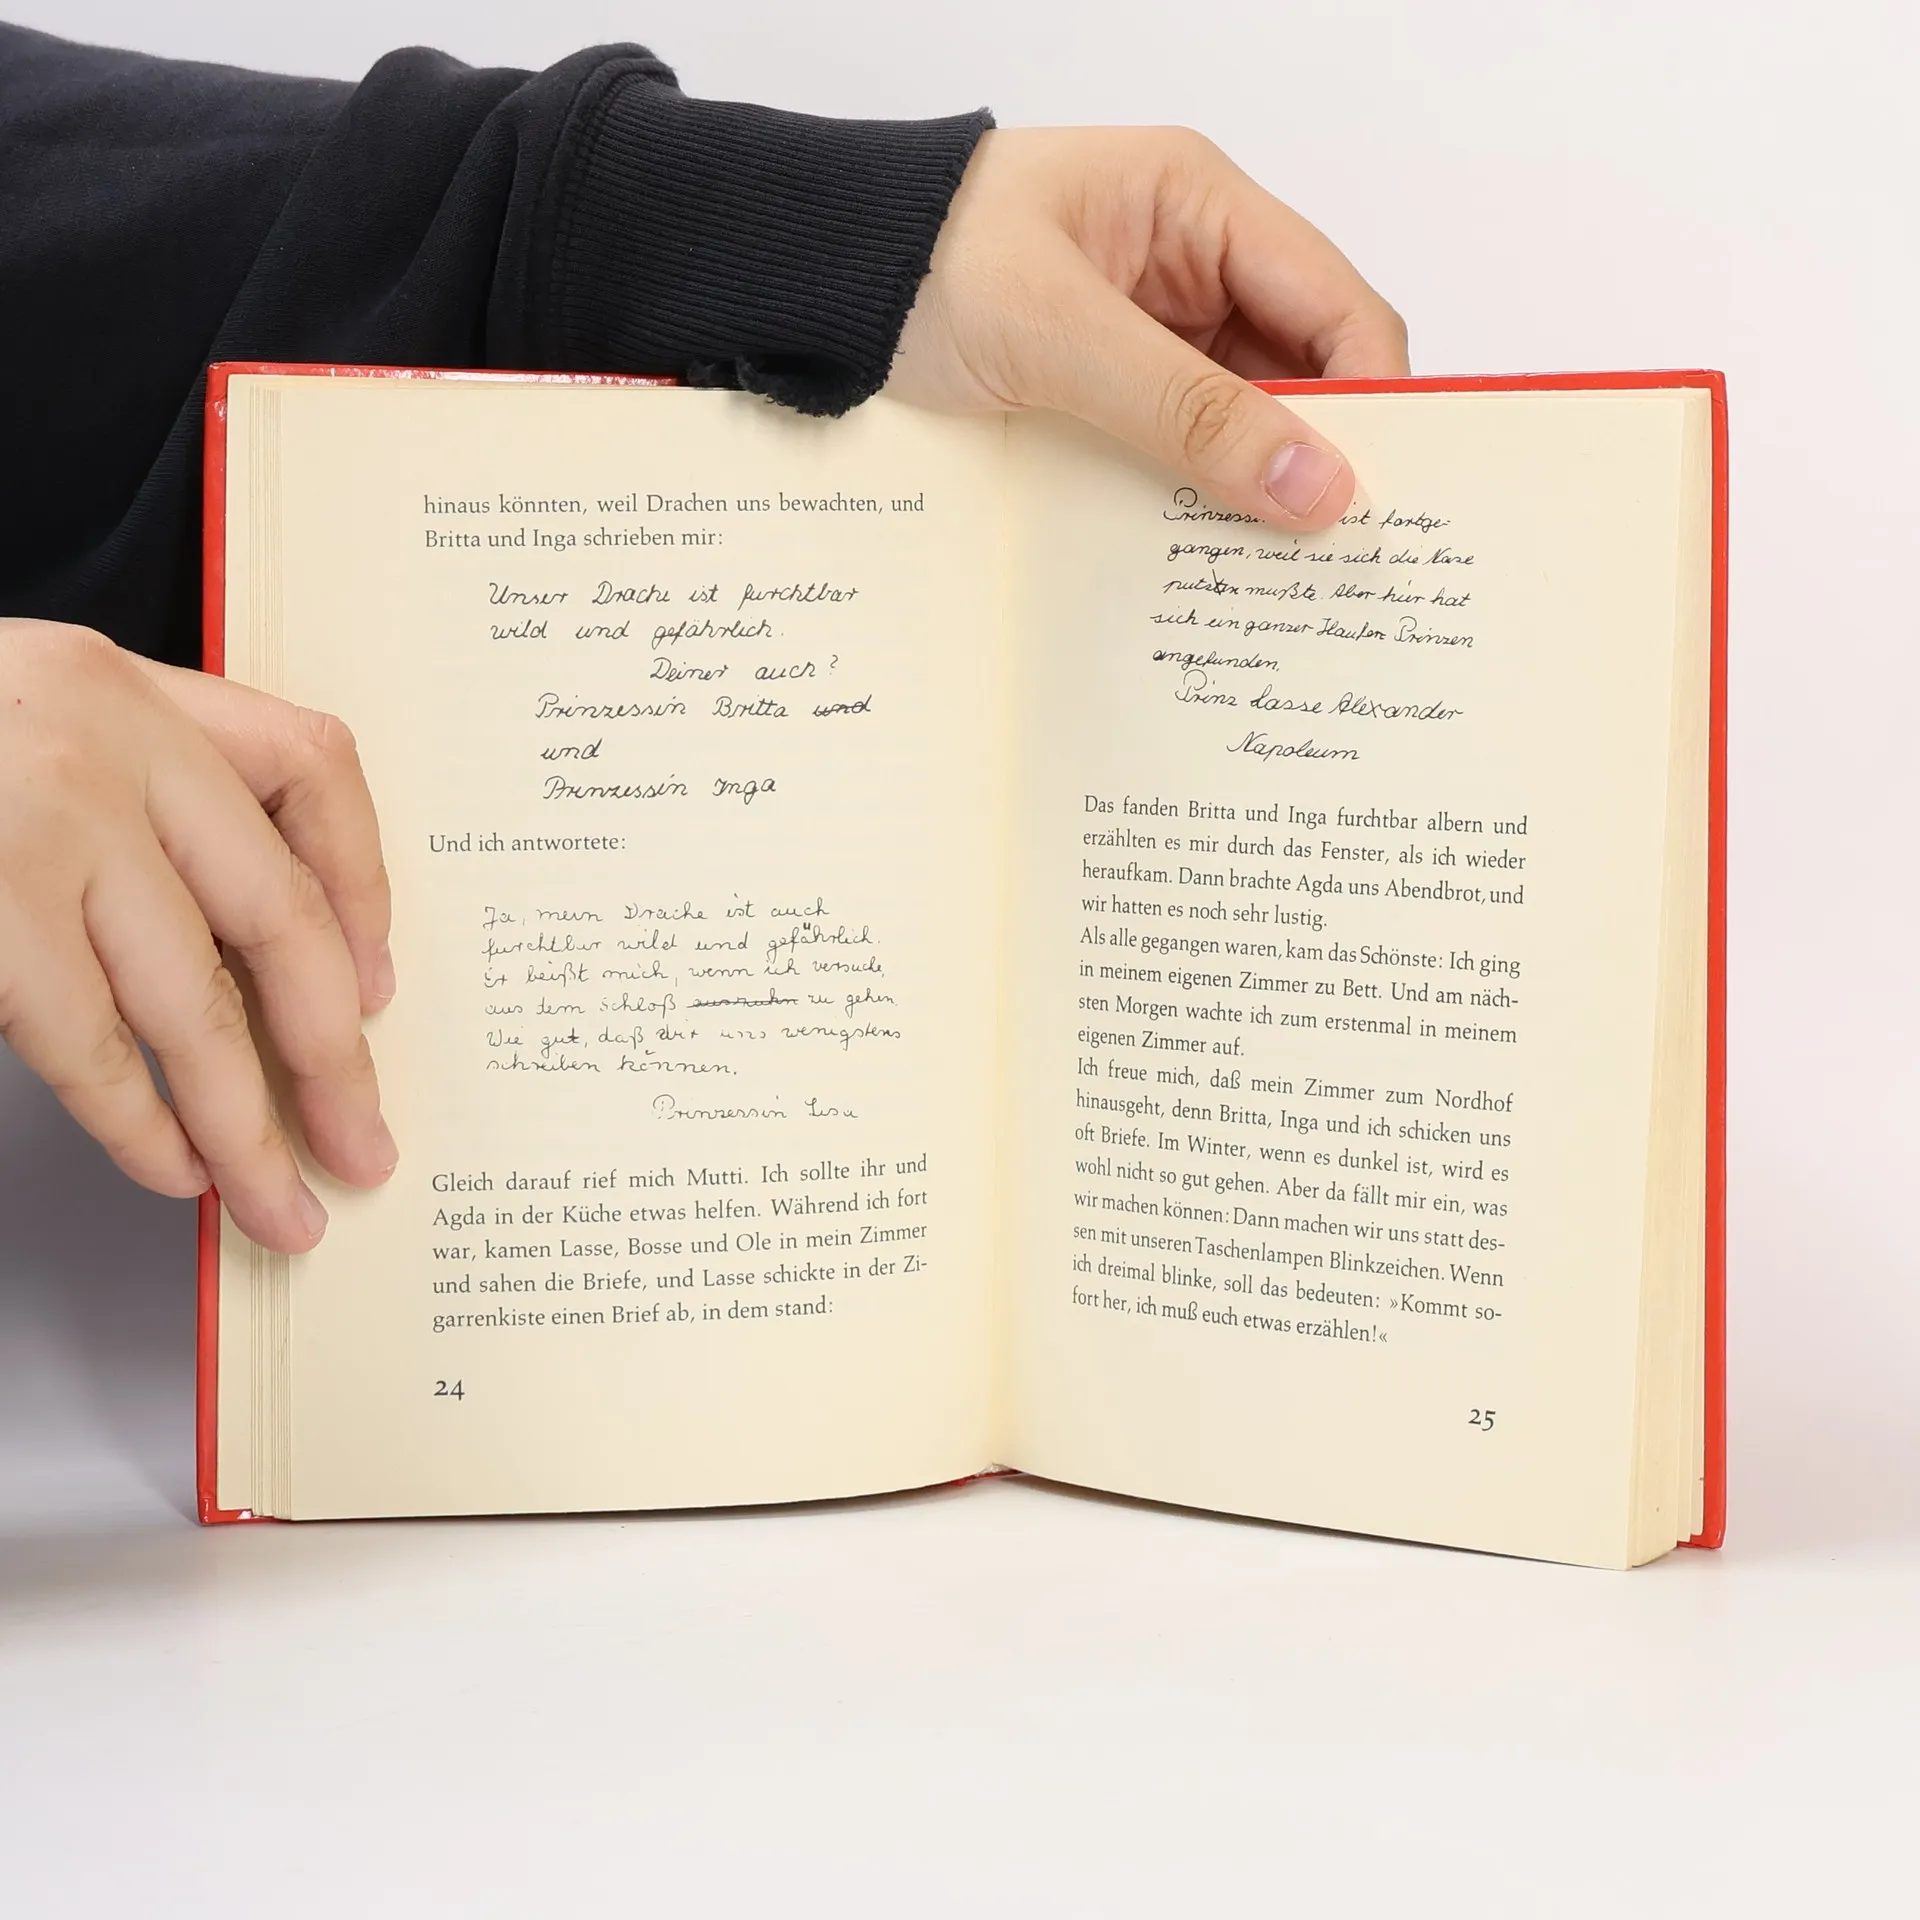 hinaus könnten, weil Drachen uns bewachten, und
Britta und Inga schrieben mir:
Unser Drache ist furchtbar
wild und gefährlich.
Deiner auch?
Prinzessin Britta und
und
Prinzessin Inga
Und ich antwortete:
Ja, mein Drache ist auch
furchtbar wild und gefährlich.
Er beißt mich, wenn ich versuche,
aus dem Schloß zu gehen.
Wie gut, daß wir uns wenigstens
schreiben können.
Prinzessin Lisa
Gleich darauf rief mich Mutti. Ich sollte ihr und
Agda in der Küche etwas helfen. Während ich fort
war, kamen Lasse, Bosse und Ole in mein Zimmer
und sahen die Briefe, und Lasse schickte in der Zi-
garrenkiste einen Brief ab, in dem stand:
24
ist fortge-
gangen, weil sie sich die Nase
putzen mußte. Aber hier hat
sich ein ganzer Haufen Prinzen
angefunden.
Prinz Lasse Alexander
Napoleum
Das fanden Britta und Inga furchtbar albern und
erzählten es mir durch das Fenster, als ich wieder
heraufkam. Dann brachte Agda uns Abendbrot, und
wir hatten es noch sehr lustig.
Als alle gegangen waren, kam das Schönste: Ich ging
in meinem eigenen Zimmer zu Bett. Und am näch-
sten Morgen wachte ich zum erstenmal in meinem
eigenen Zimmer auf.
Ich freue mich, daß mein Zimmer zum Nordhof
hinausgeht, denn Britta, Inga und ich schicken uns
oft Briefe. Im Winter, wenn es dunkel ist, wird es
wohl nicht so gut gehen. Aber da fällt mir ein, was
wir machen können: Dann machen wir uns statt des-
sen mit unseren Taschenlampen Blinkzeichen. Wenn
ich dreimal blinke, soll das bedeuten: »Kommt so-
fort her, ich muß euch etwas erzählen!«
25